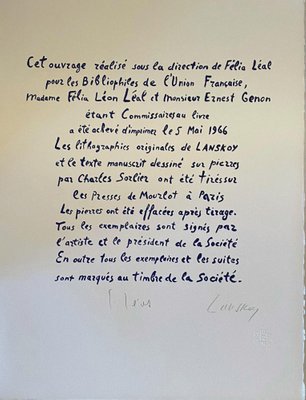 Cet ouvrage réalisé sous la direction de Félia Léal
pour les Bibliophiles de l'Union Française,
Madame Félia Léon Léal et Monsieur Ernest Genon
étant Commissaires au livre
a été achevé d'imprimer le 5 Mai 1966
Les lithographies originales de LANSKOY
et le texte manuscrit dessiné sur pierres
par Charles Sorlier ont été tirés sur
les Presses de Mourlot à Paris
Les pierres ont été effacées après tirage.
Tous les exemplaires sont signés par
l'artiste et le président de la Société
En outre tous les exemplaires et les suites
sont marqués au timbre de la Société.
Lanskoy